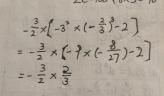 -3/2 × [-3² × (-2/3)³ - 2]
= -3/2 × [-9 × (-8/27) - 2]
= -3/2 × 2/3